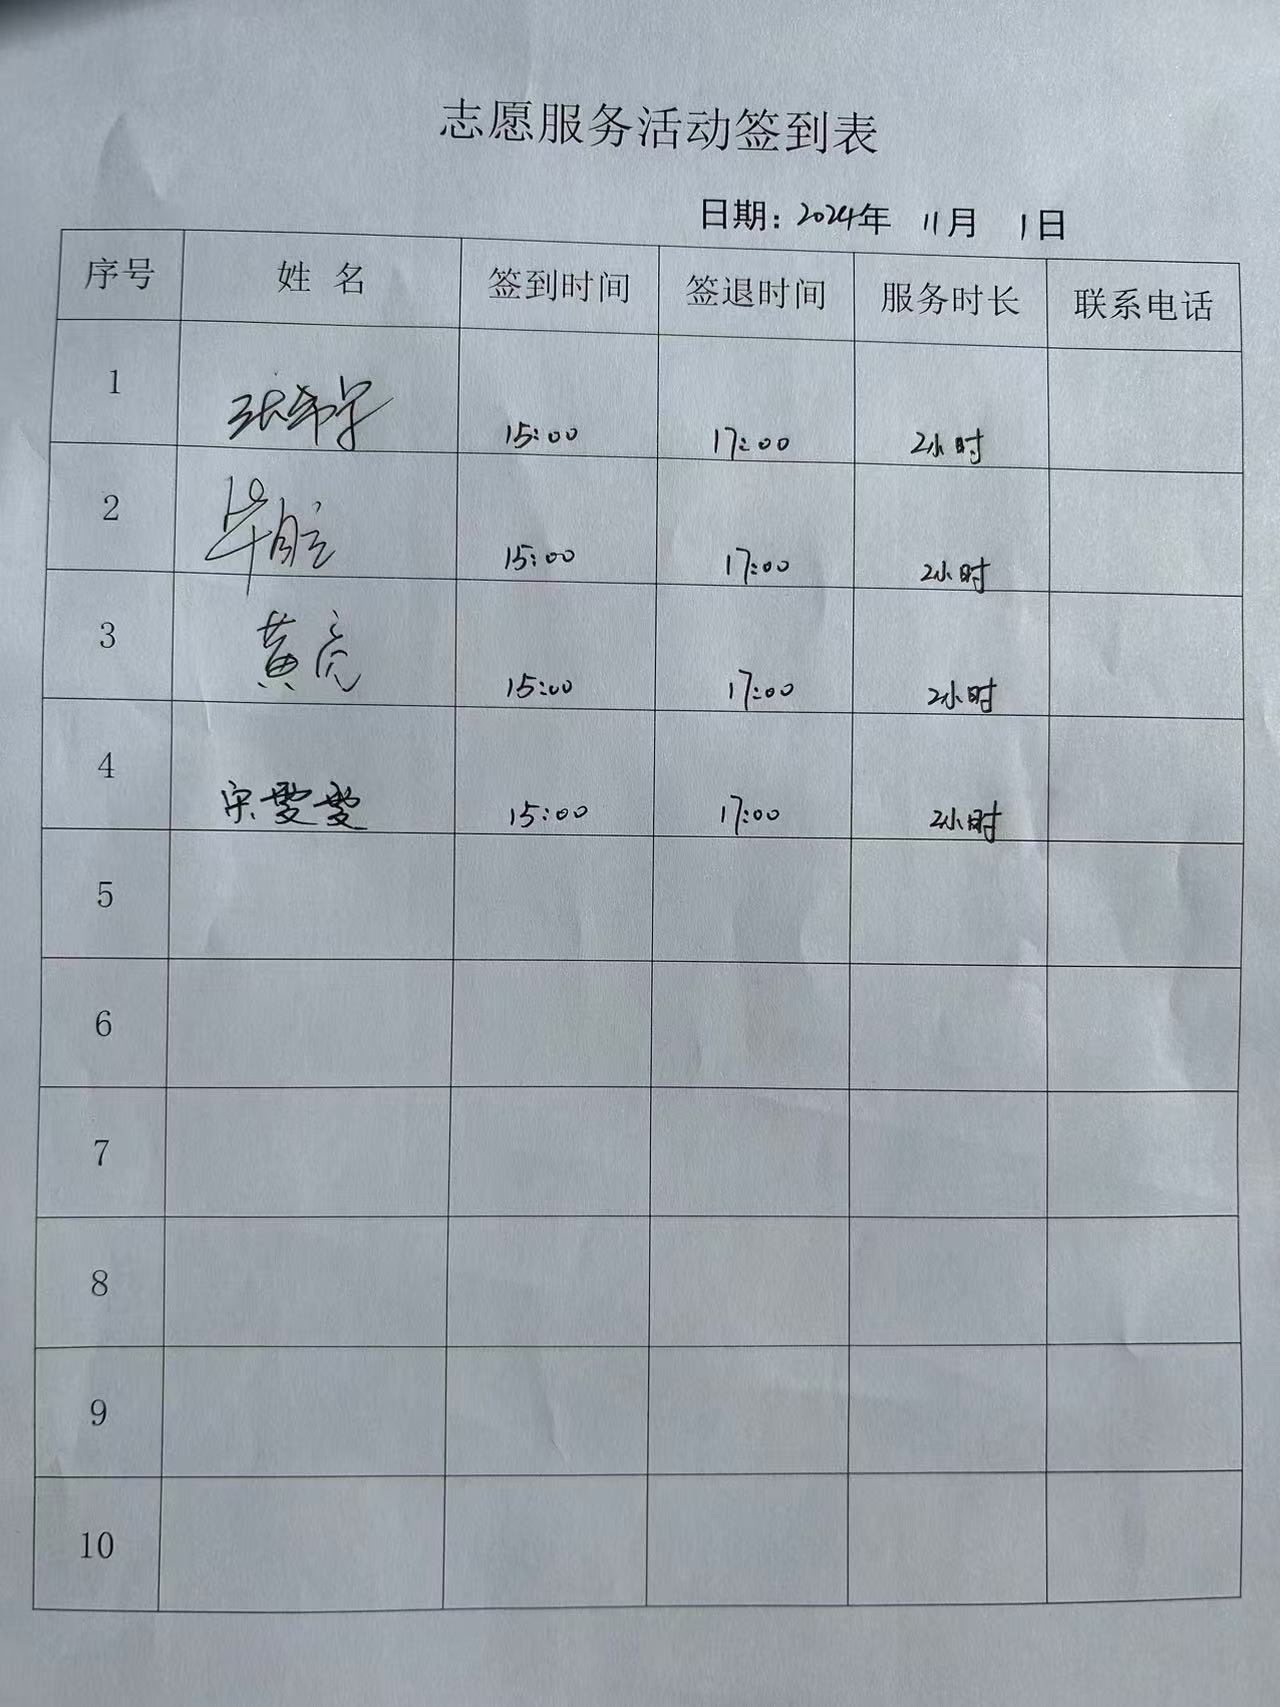 志愿服务活动签到表
日期: 2024年 11月 1日
序号 姓 名 签到时间 签退时间 服务时长 联系电话
1 张希宇 15:00 17:00 2小时
2 毕 15:00 17:00 2小时
3 黄亮 15:00 17:00 2小时
4 宋雯雯 15:00 17:00 2小时
5
6
7
8
9
10